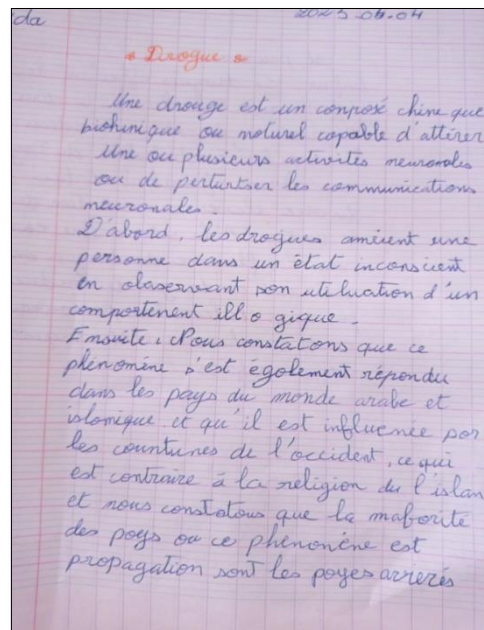 da 2023-04-04
* Drogue *
Une drouge est un composé chine que
biohinique ou noturel copoble d'attérer
Une ou plusieurs activités neuronoles
ou de perturtser les communications
neuronales.
D'abord, les drogues amèent une
personne dans un état inconscient
en olaservant son utiluation d'un
comportenent ill o gique.
Ensuite, Nous constatons que ce
phénomène s'est égolement répondu
dans les pays du monde arabe et
islomique et qu'il est influencée por
les countunes de l'occident, ce qui
est contraire à la religion du l'islan
et nous constatous que la maborité
des poys ou ce phénonène est
propagation sont les poyes arrerés